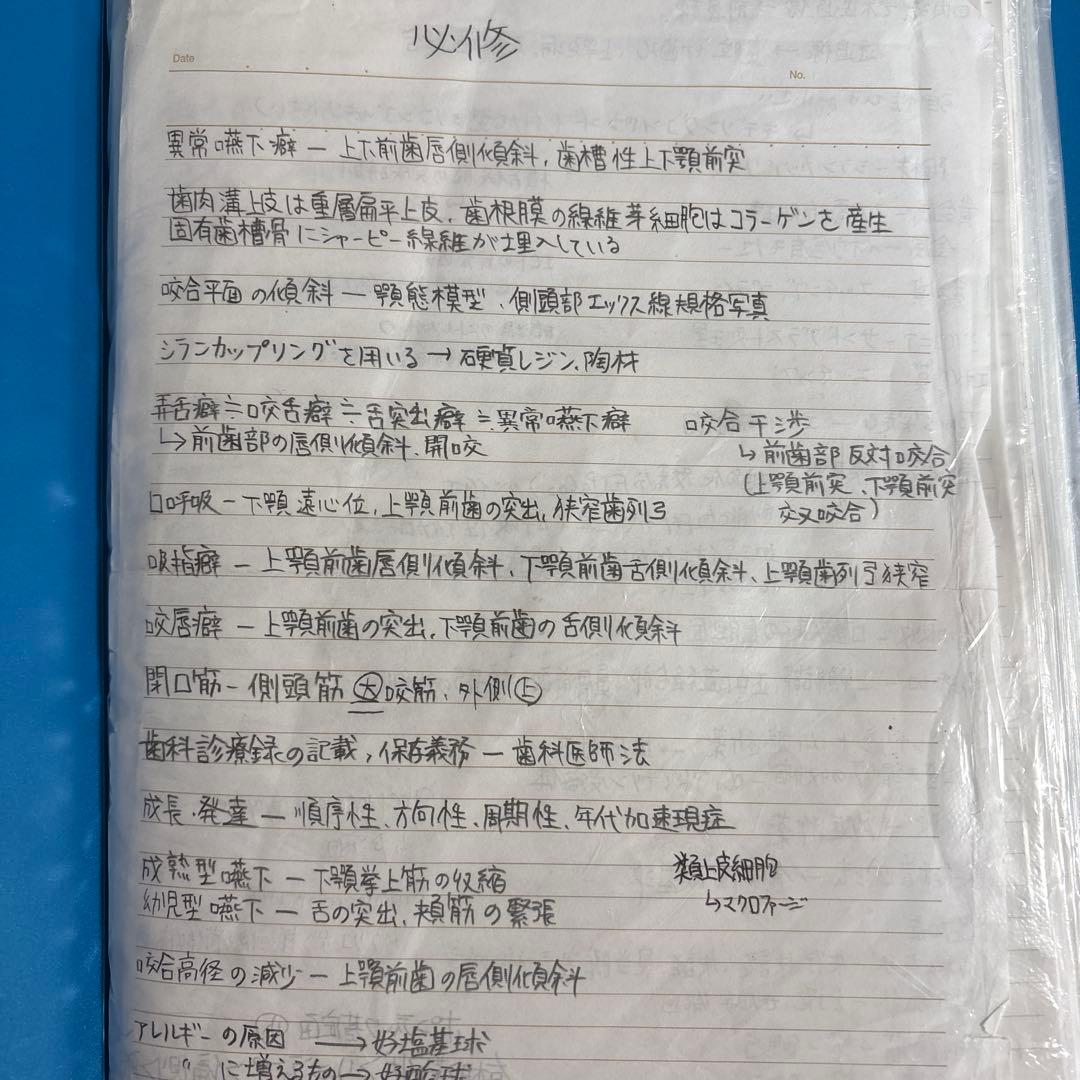 必修
Date
No.
異常嚥下癖 — 上下前歯唇側傾斜, 歯槽性上下顎前突
歯肉溝上皮は重層扁平上皮. 歯根膜の線維芽細胞はコラーゲンを産生
固有歯槽骨にシャーピー線維が埋入している
咬合平面の傾斜 — 顎態模型、側頭部エックス線規格写真
シランカップリングを用いる → 硬質レジン、陶材
弄舌癖≒咬舌癖≒舌突出癖≒異常嚥下癖 咬合干渉
↳前歯部の唇側傾斜、開咬 ↳前歯部反対咬合
(上顎前突、下顎前突
口呼吸 — 下顎遠心位, 上顎前歯の突出, 狭窄歯列弓 交叉咬合)
吸指癖 — 上顎前歯唇側傾斜、下顎前歯舌側傾斜、上顎歯列弓狭窄
咬唇癖 — 上顎前歯の突出, 下顎前歯の舌側傾斜
閉口筋 — 側頭筋 大 咬筋、外側上
歯科診療録の記載, 保存義務 — 歯科医師法
成長・発達 — 順序性、方向性、周期性、年代加速現症
成熟型嚥下 — 下顎挙上筋の収縮 類上皮細胞
幼児型嚥下 — 舌の突出、頬筋の緊張 ↳マクロファージ
咬合高径の減少 — 上顎前歯の唇側傾斜
アレルギーの原因 → 好塩基球
〃 に増えるもの → 好酸球